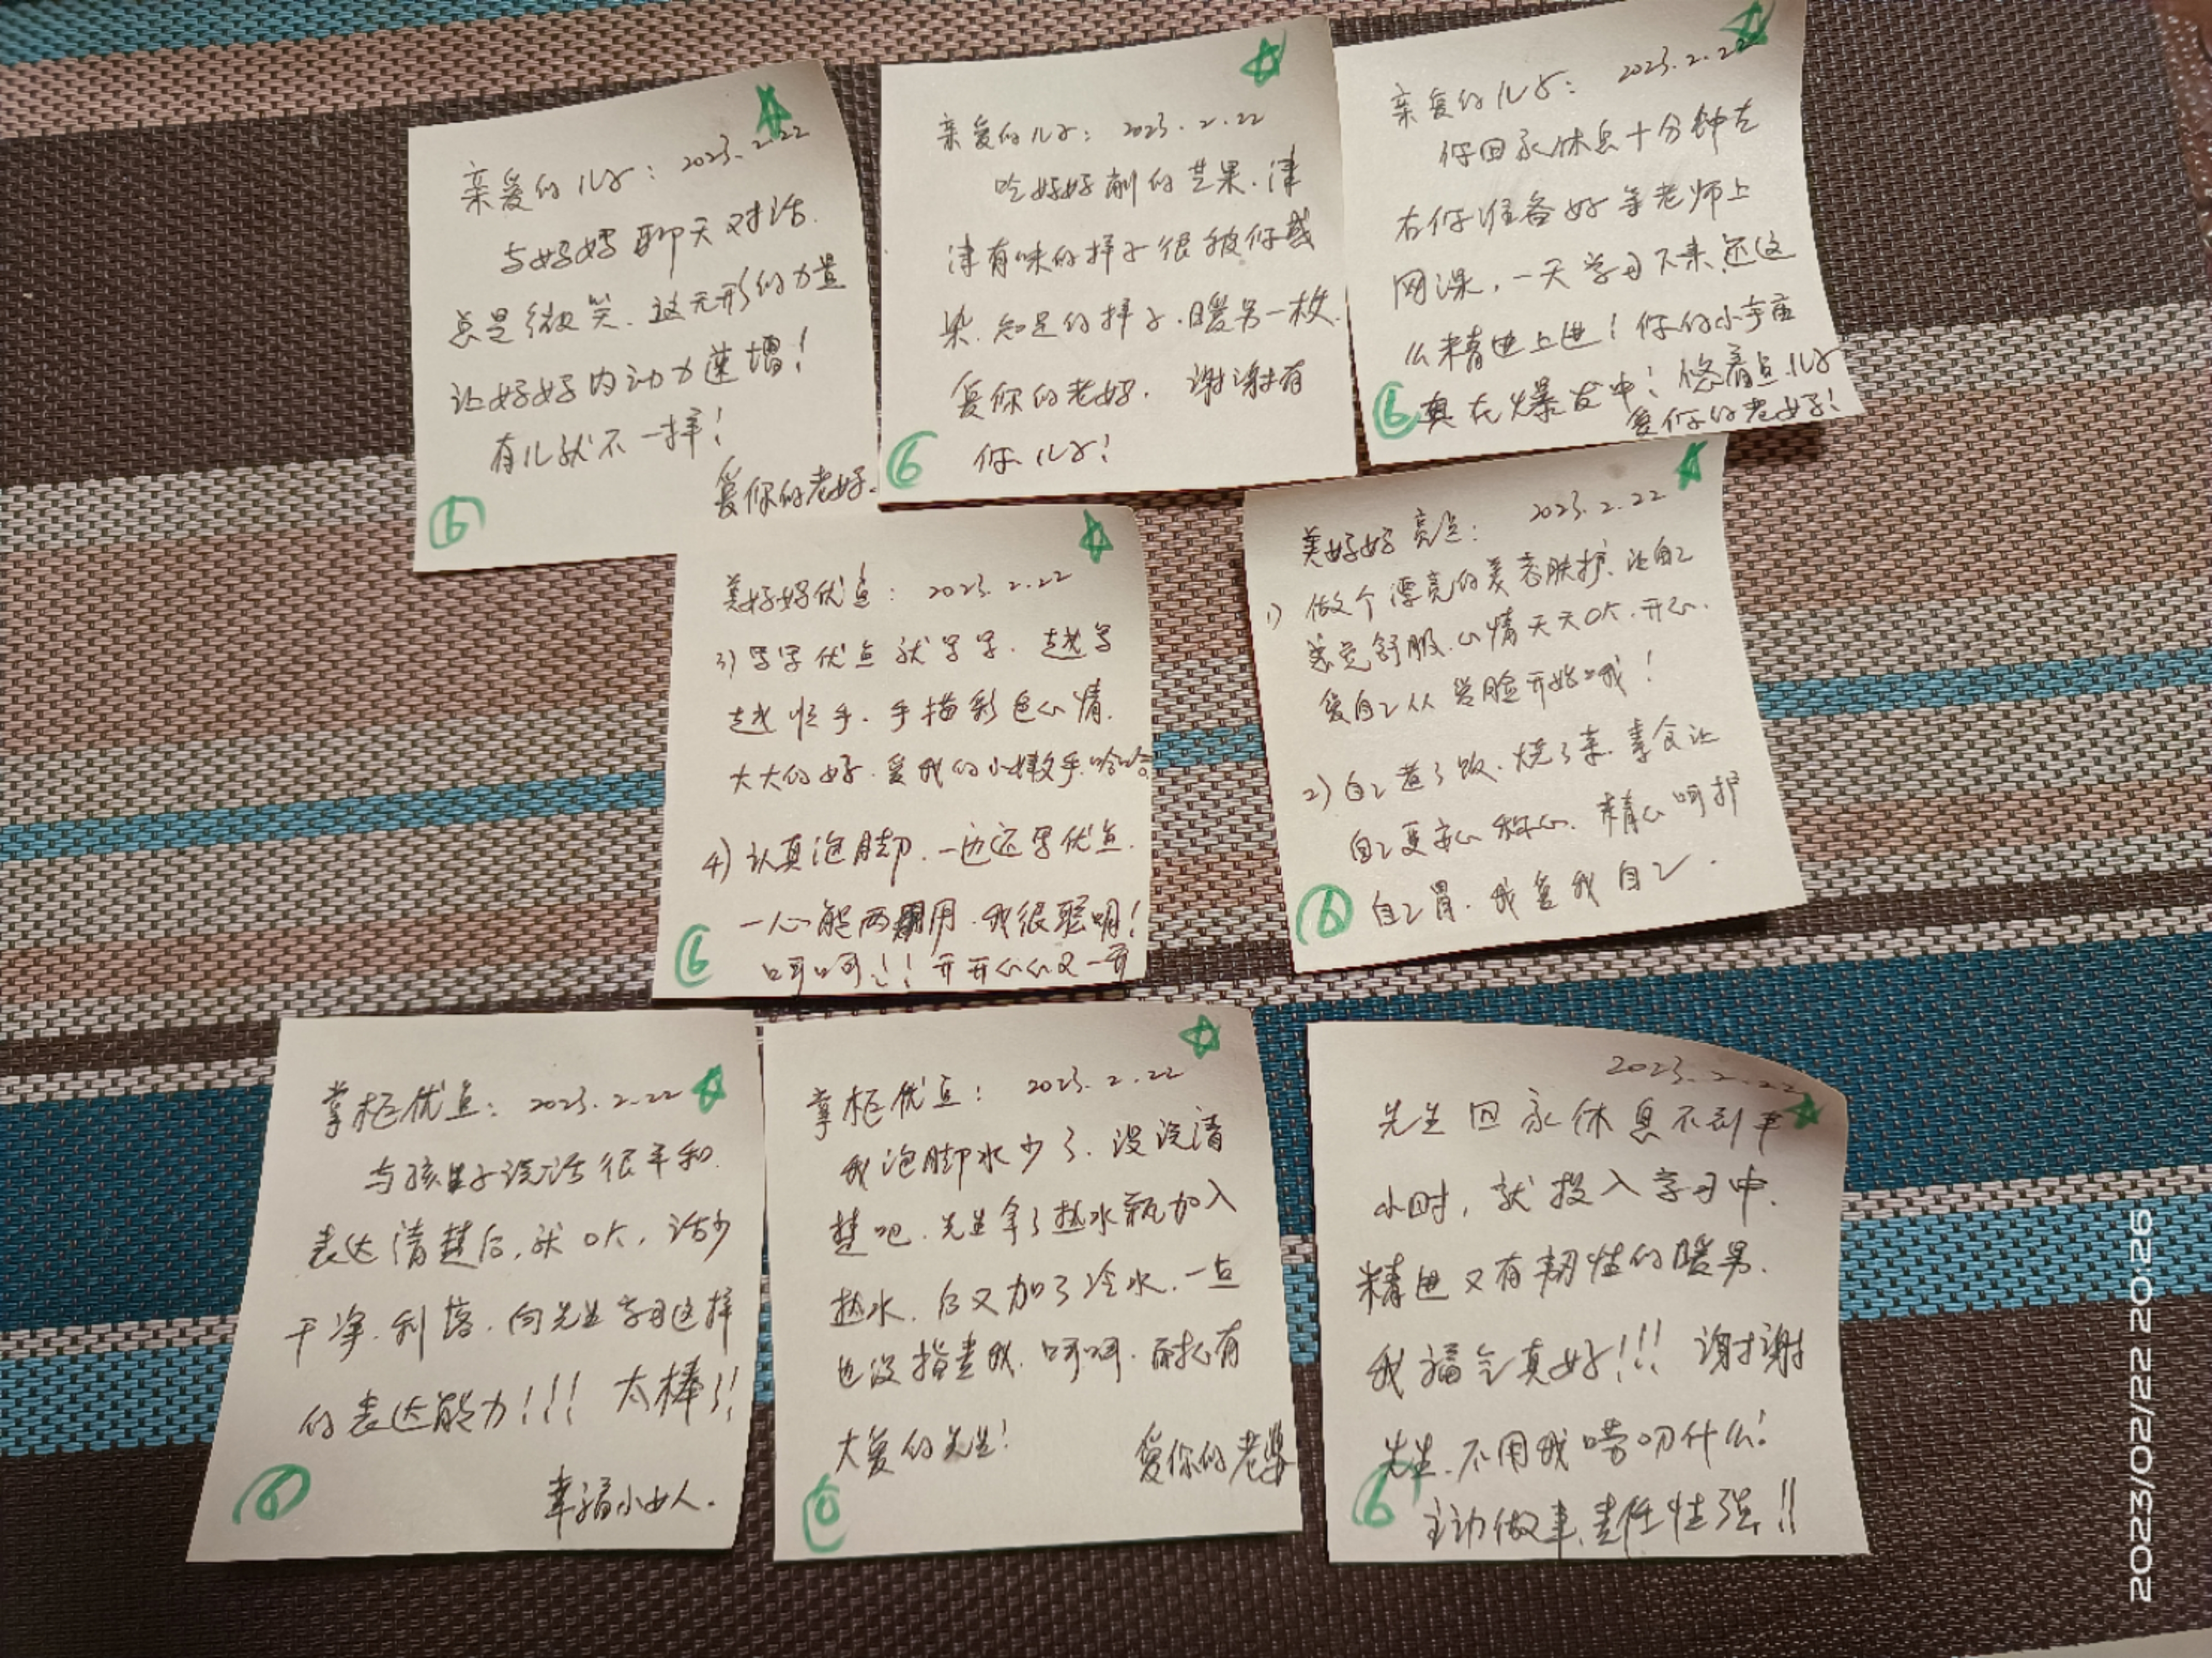 亲爱的儿子: 2023.2.22
与好好聊天对话.
总是微笑.这无形的力量
让好好内动力速增!
有儿就不一样!
爱你的老好.
6
亲爱的儿子: 2023.2.22
吃好好削的苹果.津
津有味的样子很被你感
染.知足的样子.暖男一枚.
爱你的老好. 谢谢有
你儿子!
6
亲爱的儿子: 2023.2.22
你回家休息十分钟左
右你准备好等老师上
网课,一天学习下来还这
么精进上进!你的小宇宙
真在爆发中!悠着点儿子
爱你的老好!
6
美好好优点: 2023.2.22
3)写字优点就写字.越写
越顺手.手描彩色心情.
大大的好.爱我的小嫩手.哈哈
4)认真泡脚.一边还写优点.
一心能两用.我很聪明!
呵呵!!开开心心又一天
6
美好好亮点: 2023.2.22
1)做个漂亮的美容肤护.让自己
感觉舒服.心情天天OK.开心.
爱自己从爱脸开始哦!
2)自己煮了饭.烧了菜.素食让
自己更安心称心.精心呵护
自己胃.我爱我自己.
6
掌柜优点: 2023.2.22
与孩子说话很平和.
表达清楚后,就OK,话少
干净.利落.向先生学习这样
的表达能力!!! 太棒了!
幸福小女人.
6
掌柜优点: 2023.2.22
我泡脚水少了.没说清
楚吧.先生拿了热水瓶加入
热水.后又加了冷水.一点
也没指责我.呵呵.耐心有
大爱的先生!
爱你的老婆
6
2023.2.22
先生回家休息不到半
小时,就投入学习中.
精进又有韧性的暖男.
我福气真好!!! 谢谢
先生.不用我唠叨什么!
主动做事.责任性强!!
6
2023/02/22 20:26